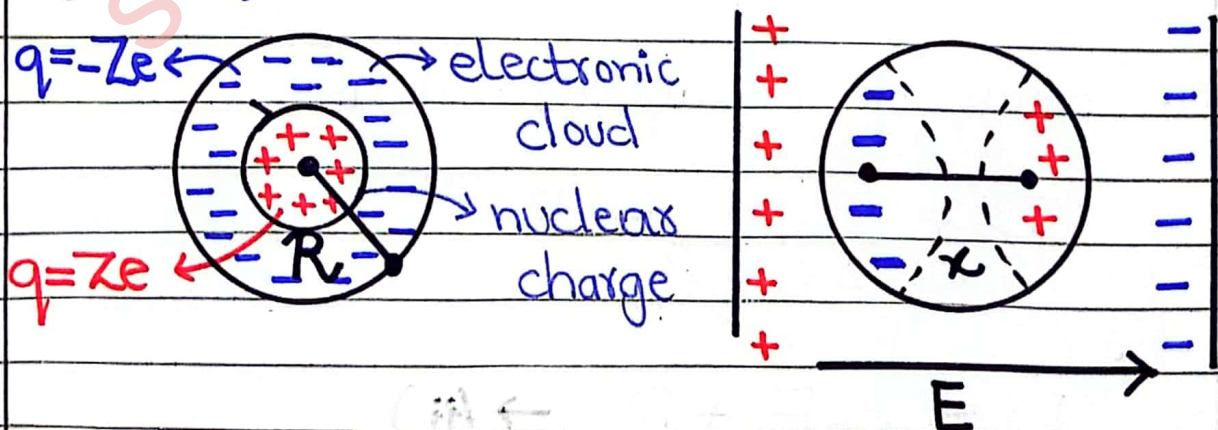 q=-Ze
electronic
cloud
R
nuclear
charge
q=Ze
x
E